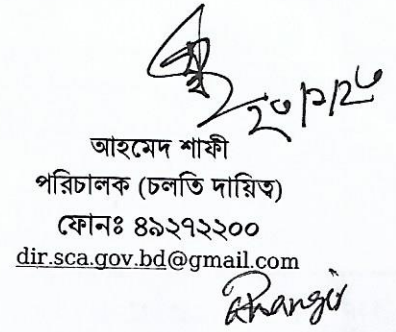 ২০/১/২৬
আহমেদ শাফী
পরিচালক (চলতি দায়িত্ব)
ফোনঃ ৪৯২৭২২০০
dir.sca.gov.bd@gmail.com